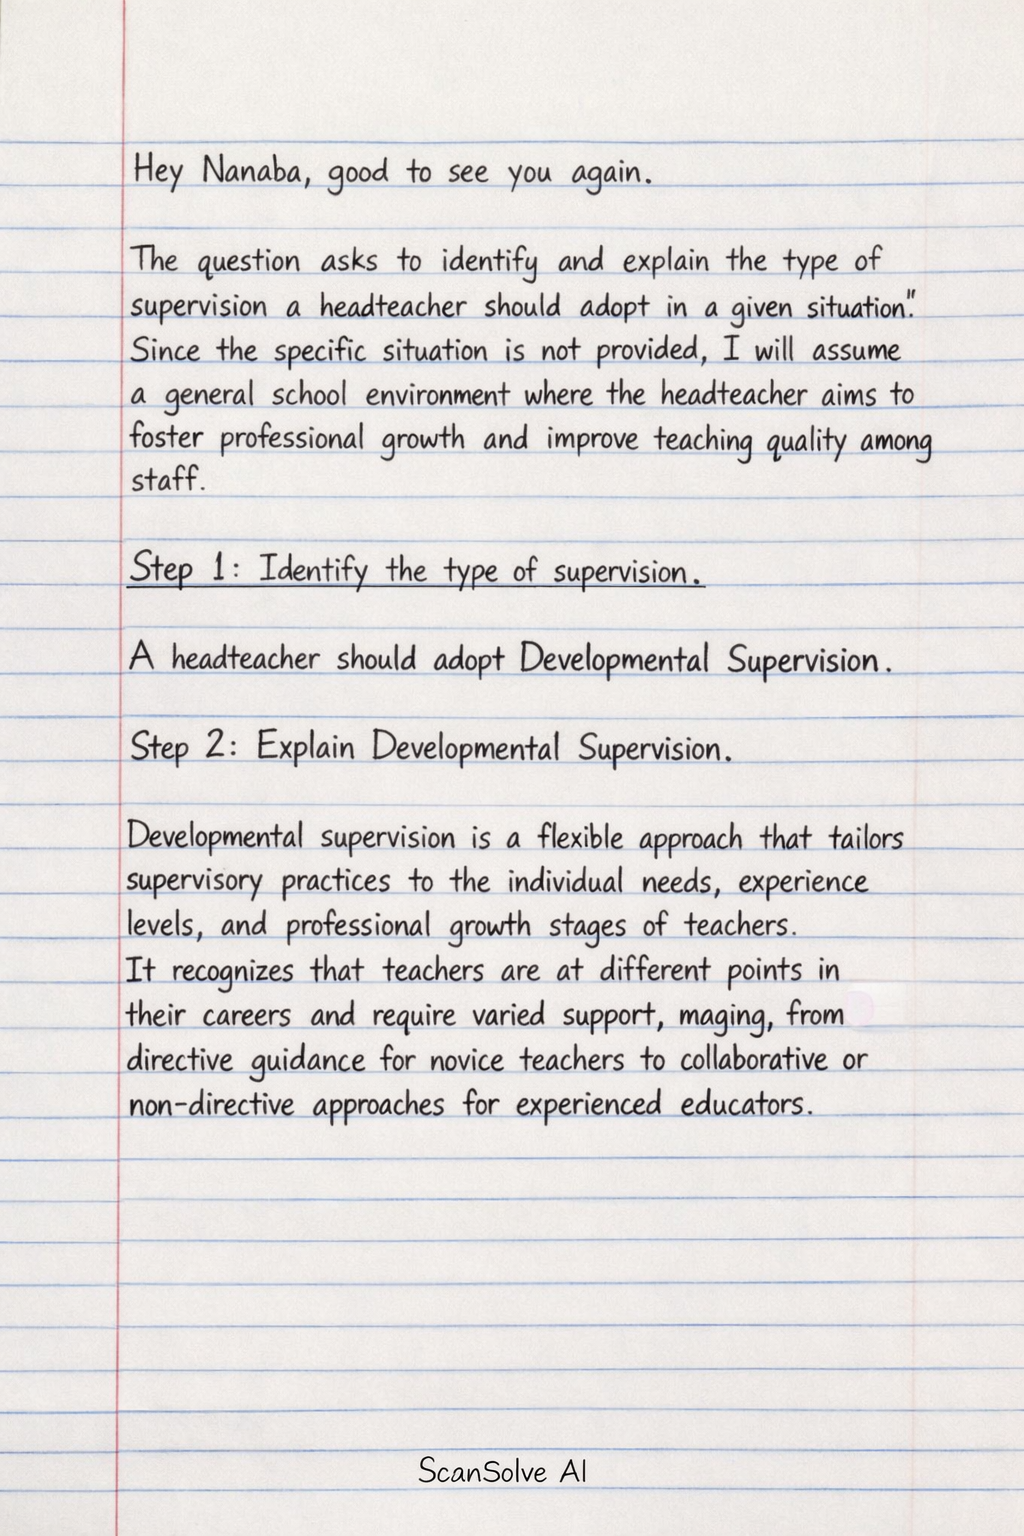 Hey Nanaba, good to see you again.
The question asks to identify and explain the type of
supervision a headteacher should adopt in a given situation."
Since the specific situation is not provided, I will assume
a general school environment where the headteacher aims to
foster professional growth and improve teaching quality among
staff.
Step 1: Identify the type of supervision.
A headteacher should adopt Developmental Supervision.
Step 2: Explain Developmental Supervision.
Developmental supervision is a flexible approach that tailors
supervisory practices to the individual needs, experience
levels, and professional growth stages of teachers.
It recognizes that teachers are at different points in
their careers and require varied support, maging, from
directive guidance for novice teachers to collaborative or
non-directive approaches for experienced educators.
ScanSolve AI